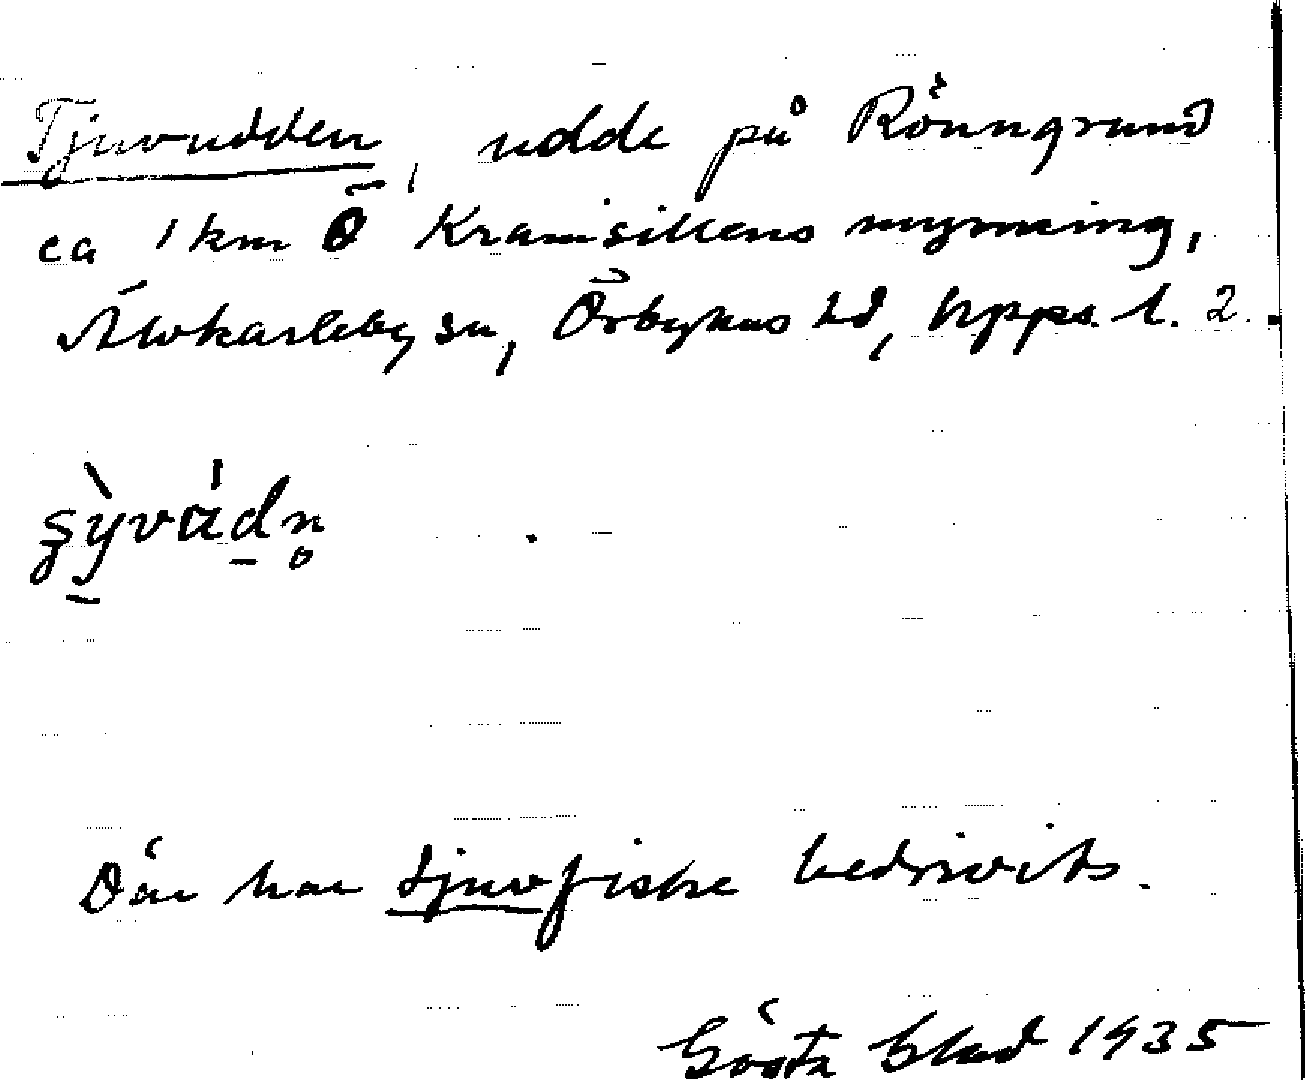 Tjuvudden, udde på Rönngrund
ca 1 km Ö Kransikens mynning,
Älvkarleby sn, Örbyhus hd, Upps. l. 2.
Där har tjuvfiske bedrivits.
Gösta Blad 1935